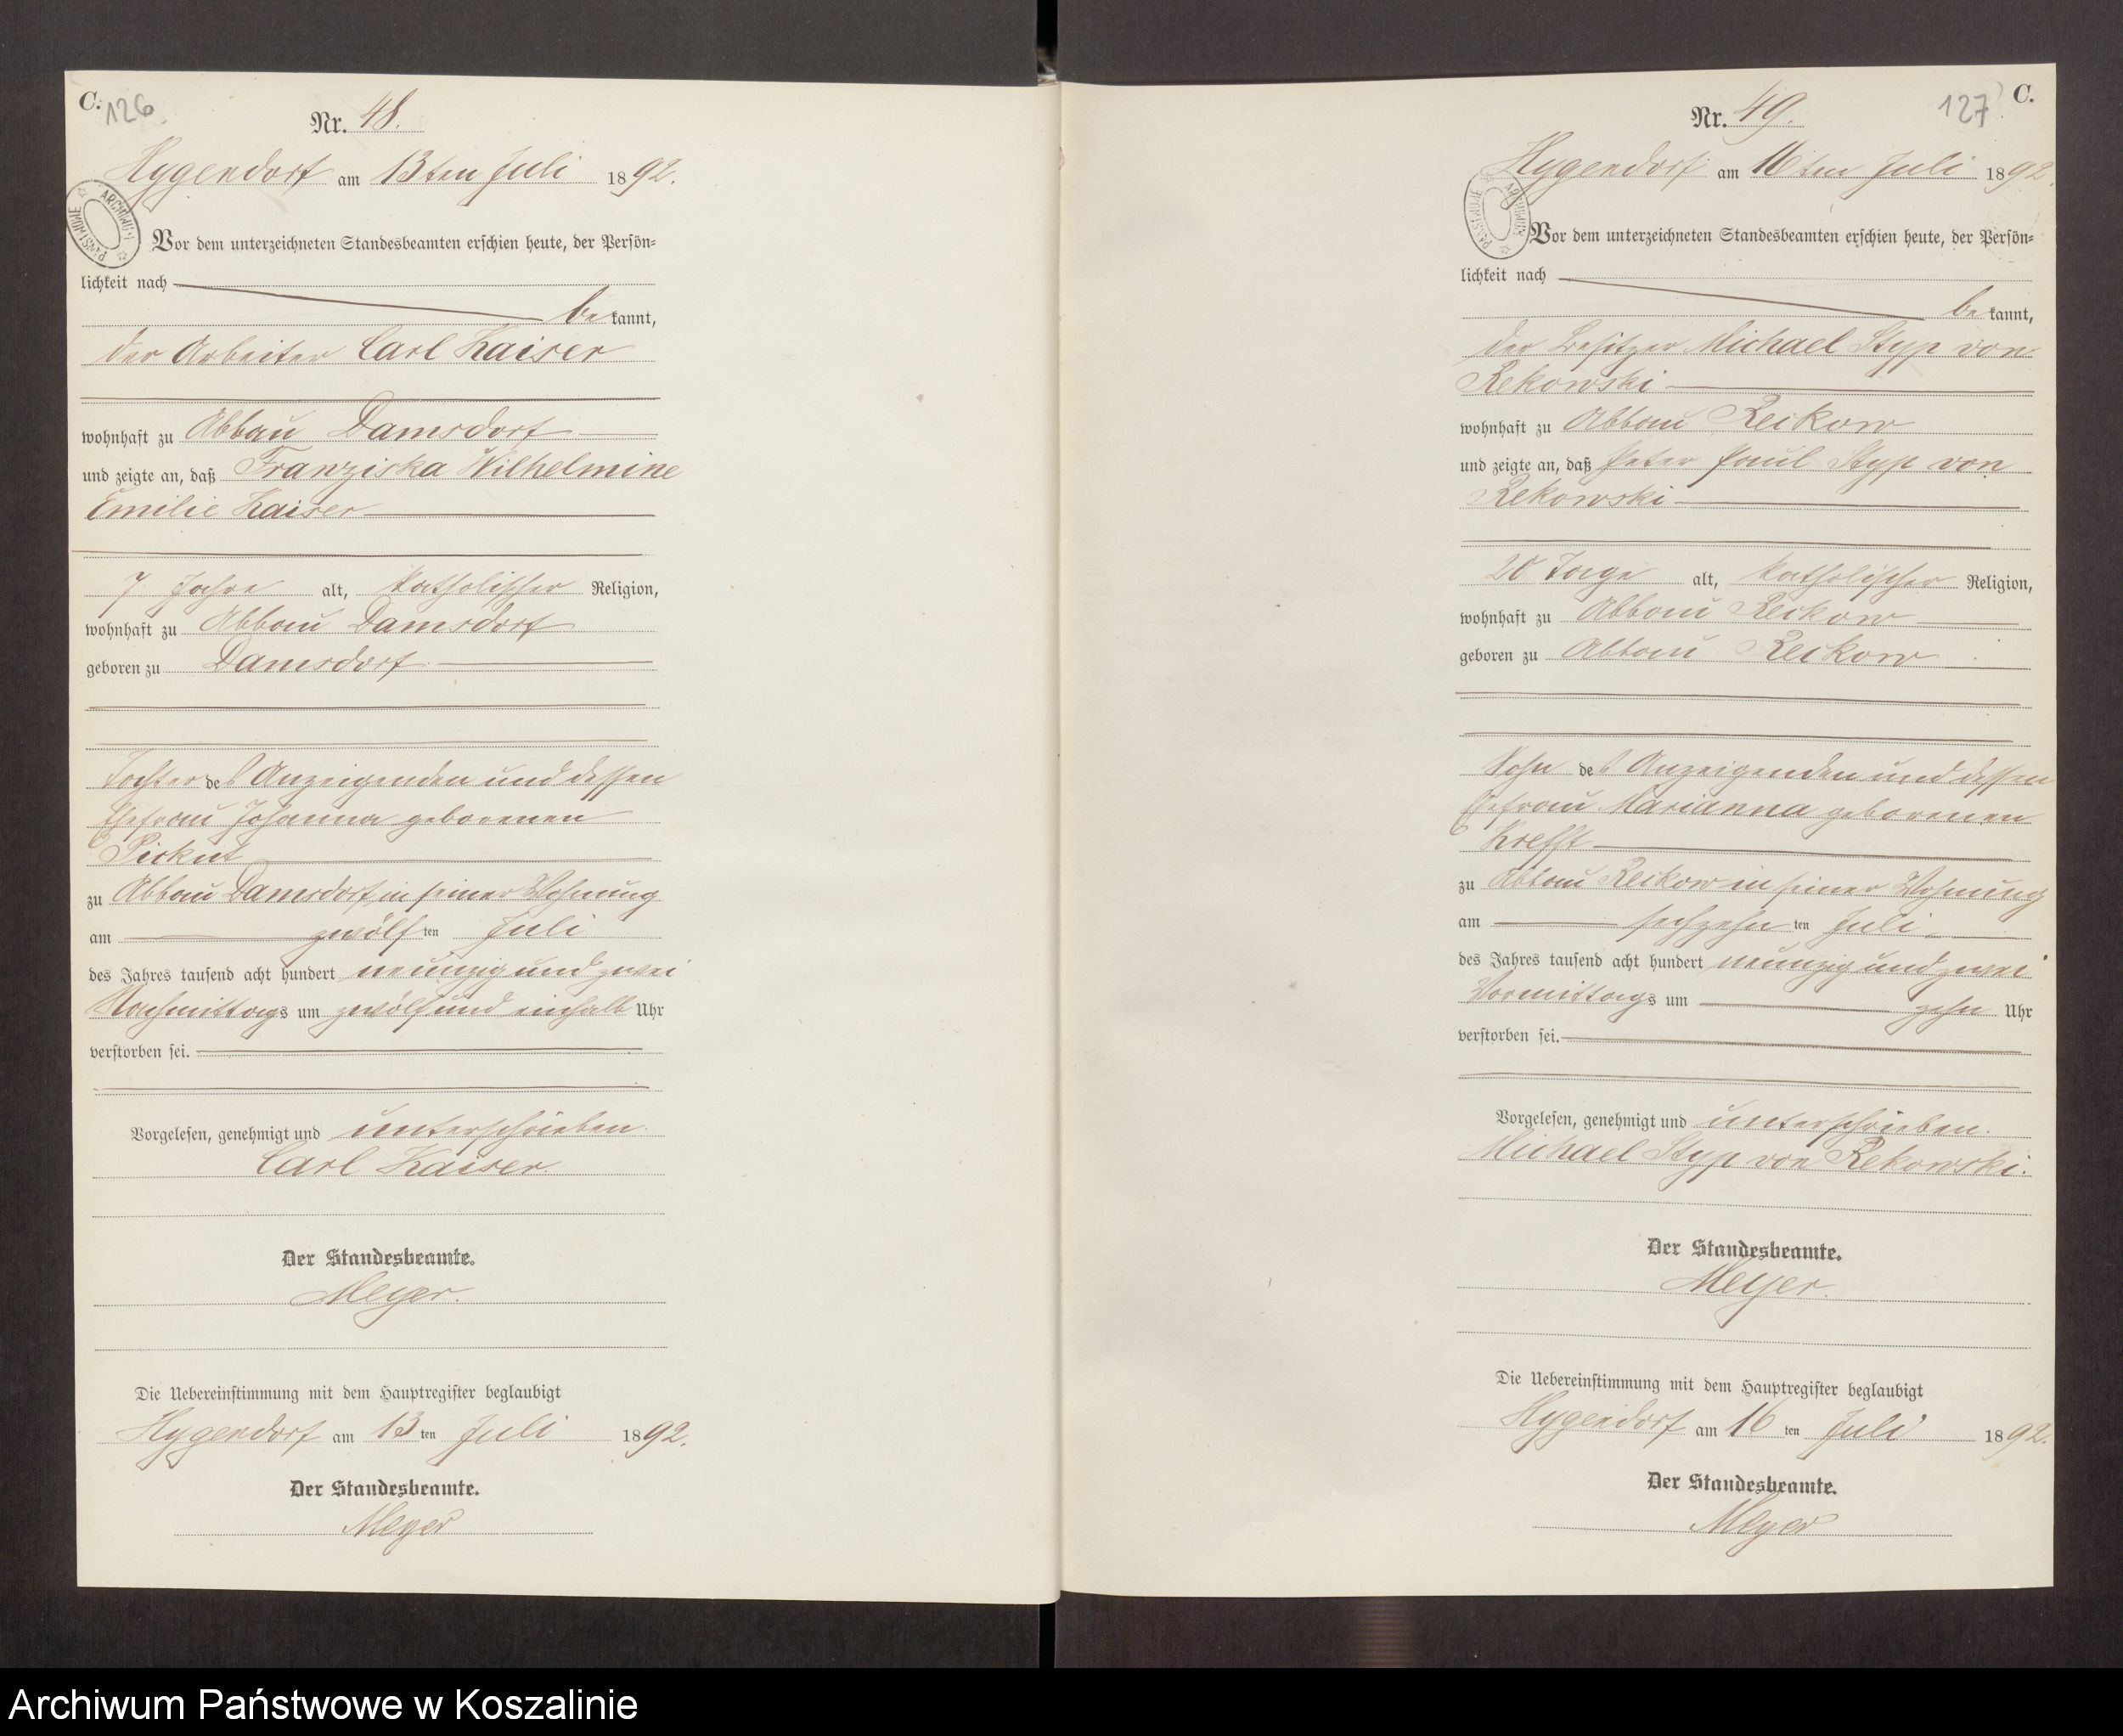 C.
126.
Nr. 48.
Hygendorf am 13ten Juli 1892.
ARCHIWUM PAŃSTWOWE
Vor dem unterzeichneten Standesbeamten erschien heute, der Persön-
lichkeit nach
bekannt,
der Arbeiter Carl Kaiser
wohnhaft zu Abbau Damsdorf
und zeigte an, daß Franziska Wilhelmine
Emilie Kaiser
7 Jahre alt, katholischer Religion,
wohnhaft zu Abbau Damsdorf
geboren zu Damsdorf
Tochter des Anzeigenden und dessen
Ehefrau Johanna geborenen
zu Abbau Damsdorf in seiner Wohnung
am zwölften Juli
des Jahres tausend acht hundert neunzig und zwei
Nachmittags um zwölf und einhalb Uhr
verstorben sei.
Vorgelesen, genehmigt und unterschrieben.
Carl Kaiser.
Der Standesbeamte.
Meyer.
Die Uebereinstimmung mit dem Hauptregister beglaubigt
Hygendorf am 13ten Juli 1892.
Der Standesbeamte.
Meyer
127
C.
Nr. 49.
Hygendorf am 16ten Juli 1892.
ARCHIWUM PAŃSTWOWE
Vor dem unterzeichneten Standesbeamten erschien heute, der Persön-
lichkeit nach
bekannt,
der Besitzer Michael Styp von
Rekowski
wohnhaft zu Abbau Reckow
und zeigte an, daß Peter Paul Styp von
Rekowski
20 Tage alt, katholischer Religion,
wohnhaft zu Abbau Reckow
geboren zu Abbau Reckow
Sohn des Anzeigenden und dessen
Ehefrau Marianna geborenen
Krefft
zu Abbau Reckow in seiner Wohnung
am sechzehnten Juli
des Jahres tausend acht hundert neunzig und zwei
Vormittags um zehn Uhr
verstorben sei.
Vorgelesen, genehmigt und unterschrieben.
Michael Styp von Rekowski.
Der Standesbeamte.
Meyer.
Die Uebereinstimmung mit dem Hauptregister beglaubigt
Hygendorf am 16ten Juli 1892.
Der Standesbeamte.
Meyer
Archiwum Państwowe w Koszalinie